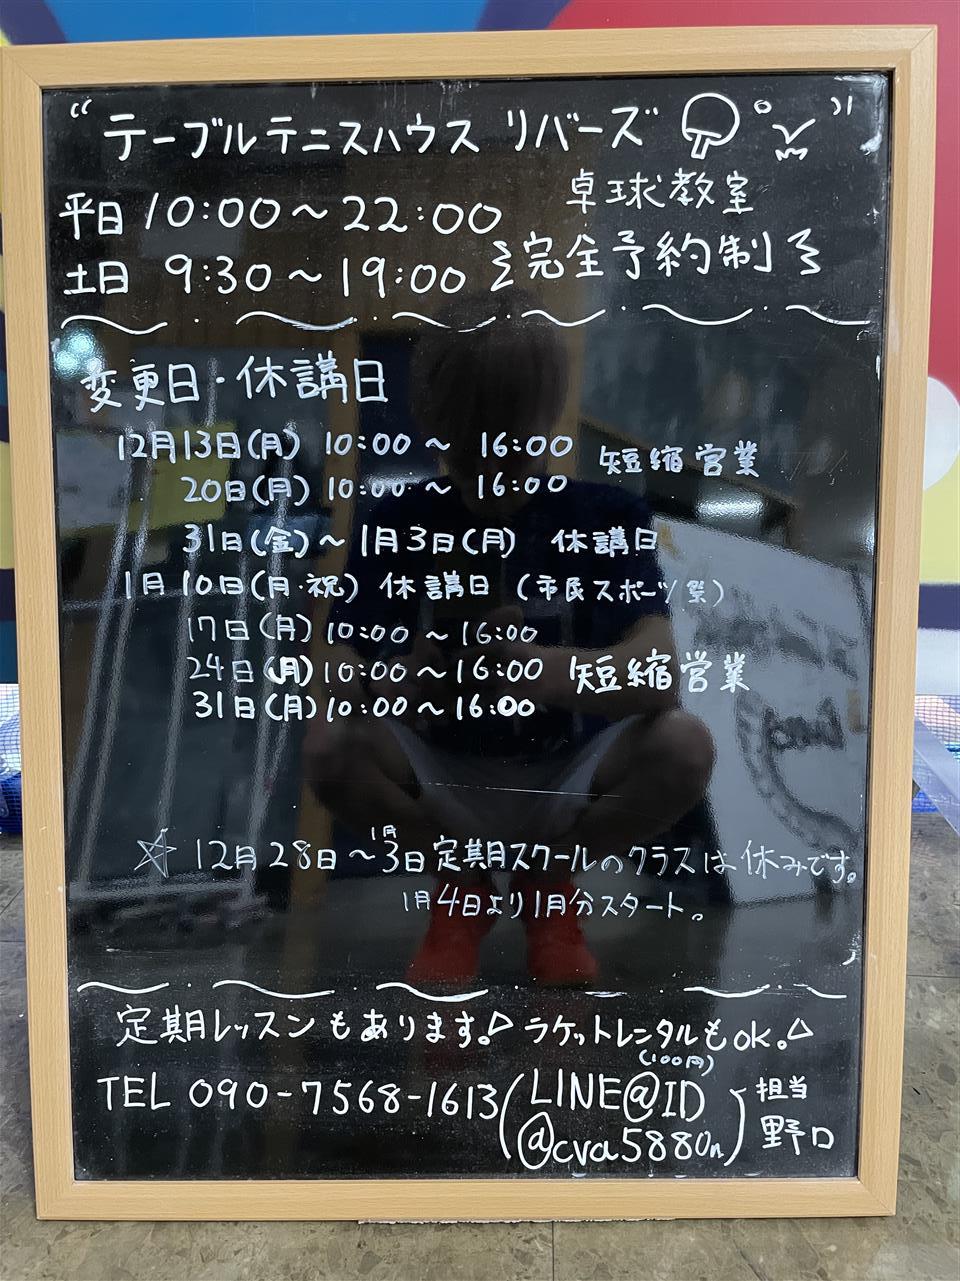 “テーブルテニスハウス リバーズ”
卓球教室
平日 10:00～22:00
土日 9:30～19:00
完全予約制
変更日・休講日
12月13日(月) 10:00～16:00
20日(月) 10:00～16:00
短縮営業
31日(金)～1月3日(月) 休講日
1月10日(月・祝) 休講日 (市民スポーツ祭)
17日(月) 10:00～16:00
24日(月) 10:00～16:00 短縮営業
31日(月) 10:00～16:00
☆ 12月28日～1月3日定期スクールのクラスは休みです。
1月4日より1月分スタート。
定期レッスンもあります。ラケットレンタルもOK。
(100円)
TEL 090-7568-1613 (LINE@ID
@cva5880n)
担当
野口